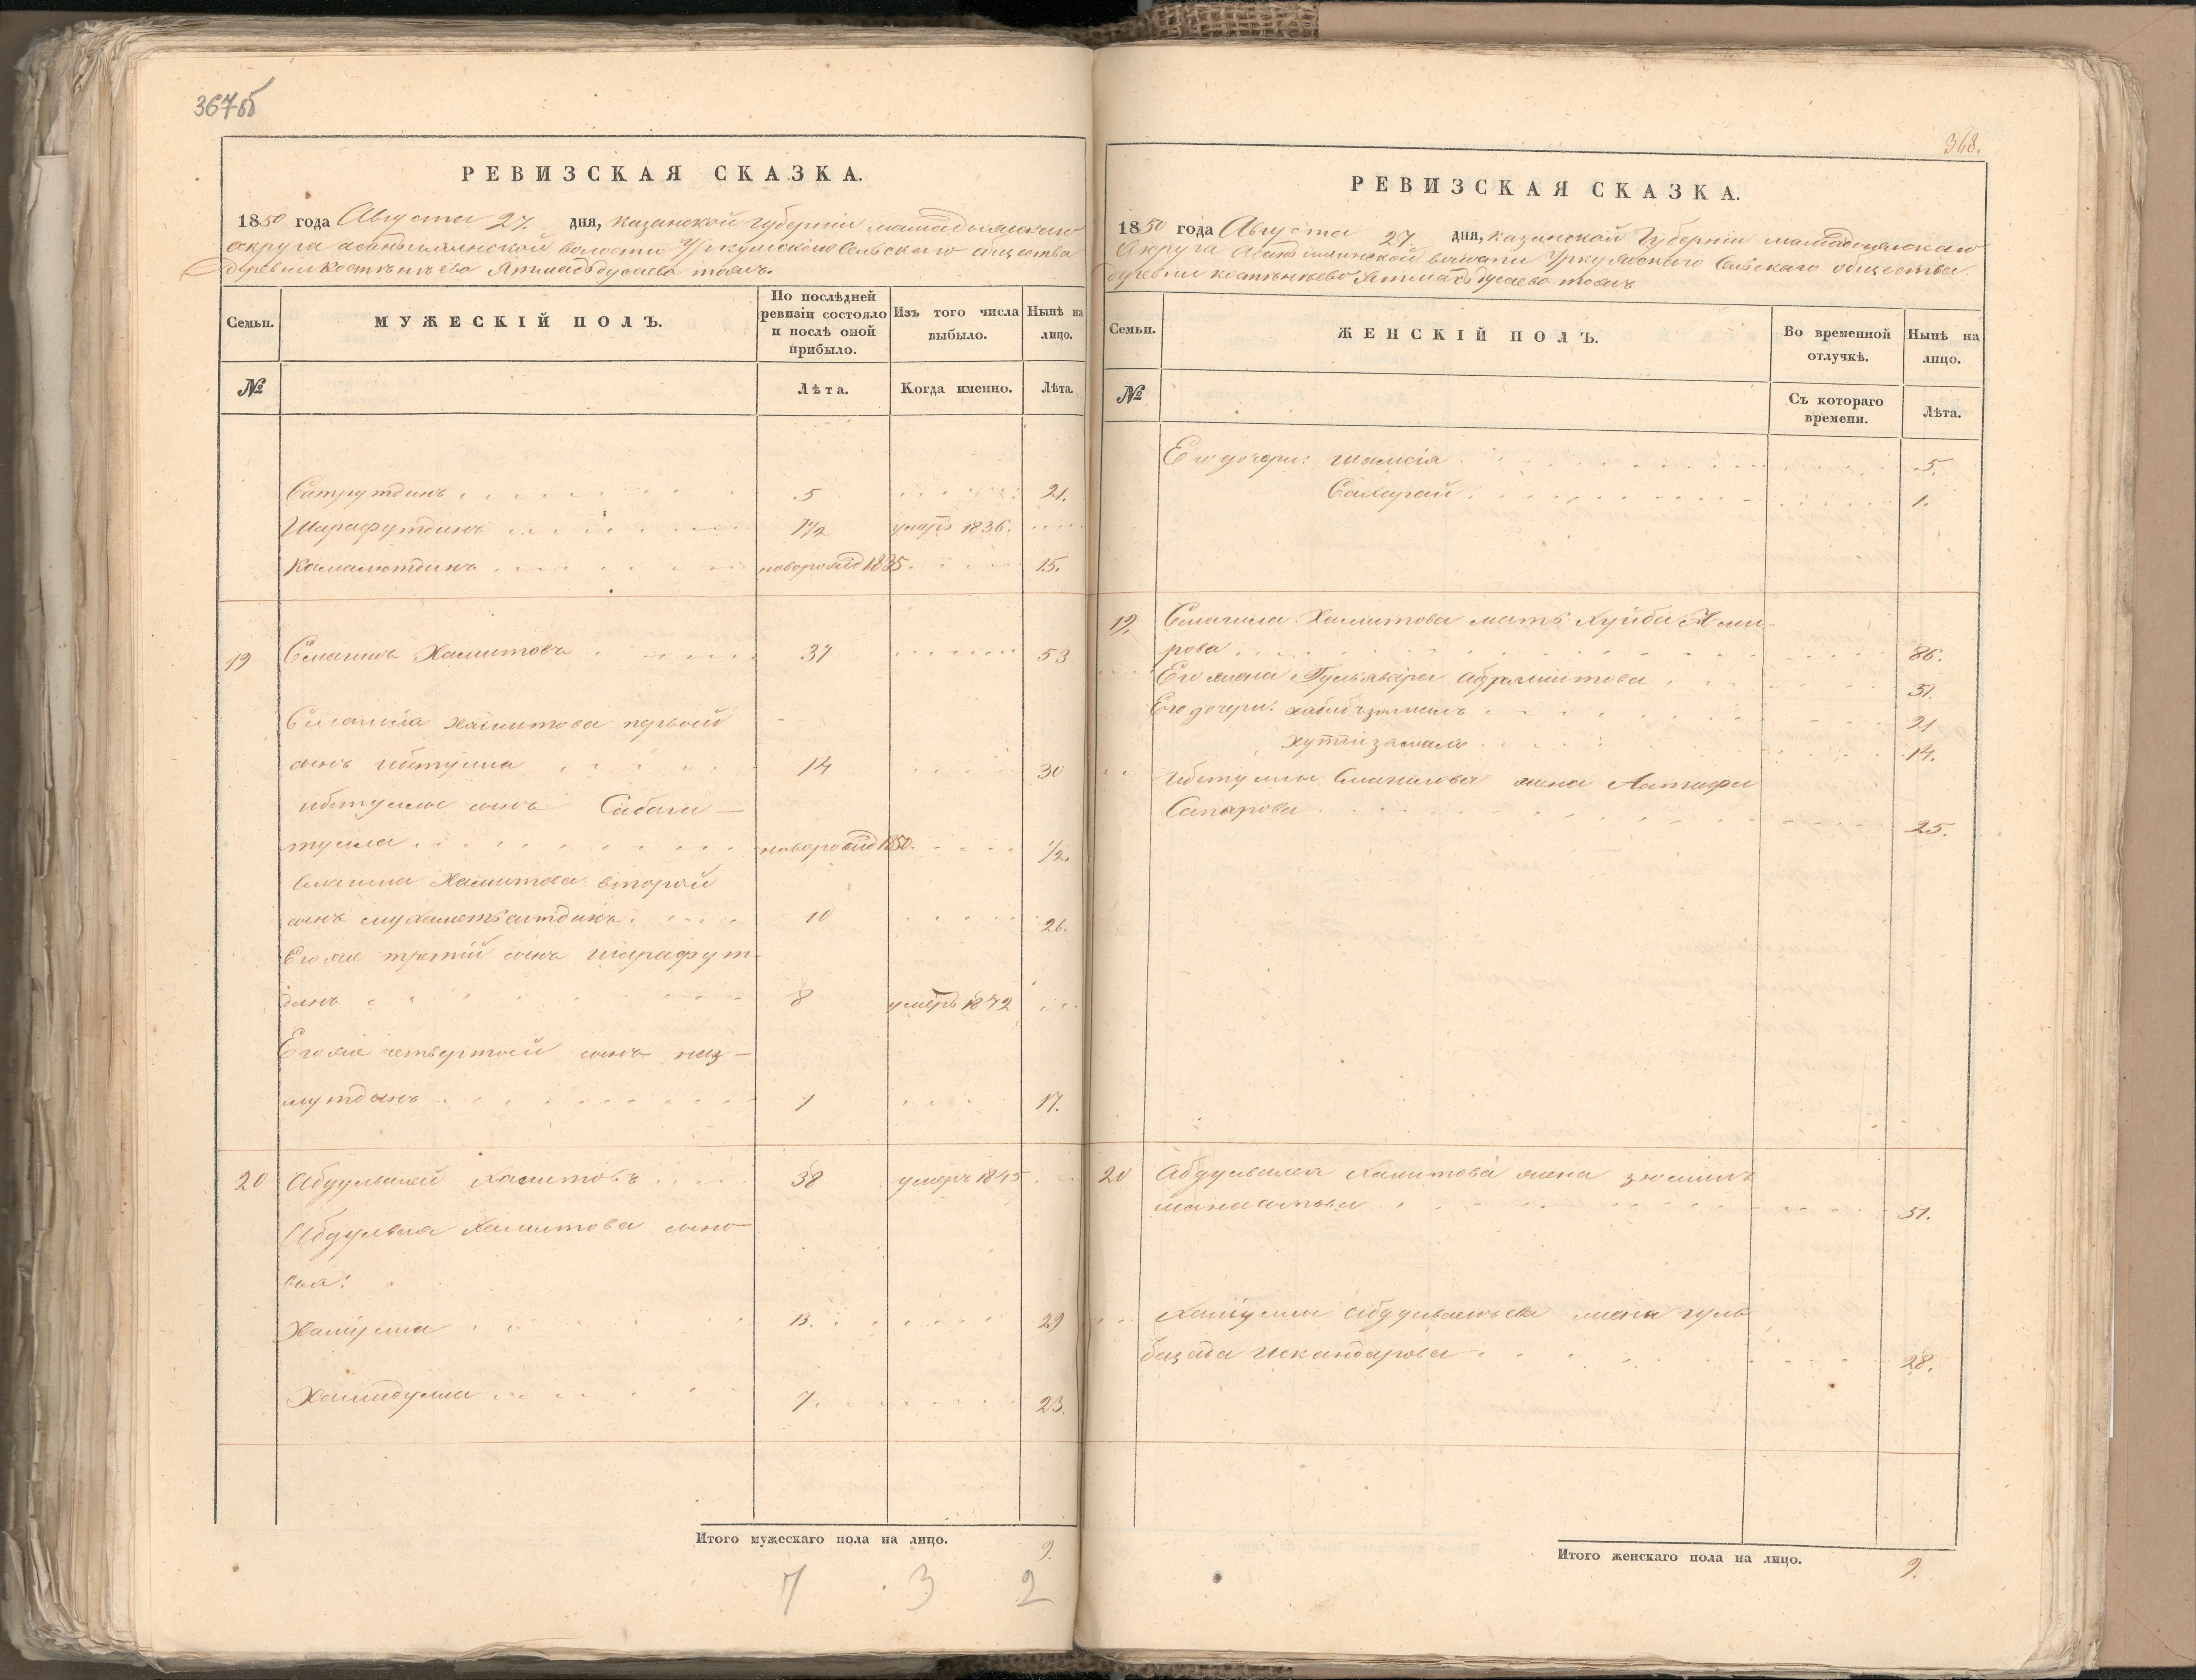 367об
РЕВИЗСКАЯ СКАЗКА.
1850 года Августа 27. дня, Казанской Губерніи Мамадышскаго
округа волости Сельскаго общества
деревни тожъ.
Семьи. МУЖЕСКІЙ ПОЛЪ. По послѣдней ревизіи состояло и послѣ оной прибыло. Изъ того числа выбыло. Нынѣ на лицо.
№ Лѣта. Когда именно. Лѣта.
Сатрутдинъ 5 21.
Шарафутдинъ 1/2 умеръ 1836.
Камалютдинъ новорожд 1835 15.
19 Смагилъ Хамитовъ 37 53
Смагила Хамитова первой
сынъ Ибетулла 14 30
Ибетуллы сынъ Сибага—
тулла новорожд 1850. 1/2.
Смагила Хамитова второй
сынъ мухаметьситдикъ. 10 26.
Его же третій сынъ Шарафут-
динъ 8 умеръ 1842
Его же четвертой сынъ наз—
мутдинъ 1 17.
20 Абдулвалей Хамитовъ 38 умеръ 1845
Абдулвалея Хамитова сыно-
вья:
Халиулла 13. 29
Хамидулла 7. 23.
Итого мужескаго пола на лицо. 9.
7 3 2
368.
РЕВИЗСКАЯ СКАЗКА.
1850 года Августа 27. дня, Казанской Губерніи Мамадышскаго
Округа волости Сельскаго общества
деревни тожъ
Семьи. ЖЕНСКІЙ ПОЛЪ. Во временной отлучкѣ. Нынѣ на лицо.
№ Съ котораго времени. Лѣта.
Его дочери: Шамсія 5.
1.
19. Смагила Хамитова мать Ами-
рова 86.
Его жена 51.
Его дочери: 21
14.
Ибетуллы Смагилова жена Латифа
Сапарова 25.
20 Абдулвалея Хамитова жена
51.
Халиуллы жена гуль
Искандарова 28.
Итого женскаго пола на лицо. 9.